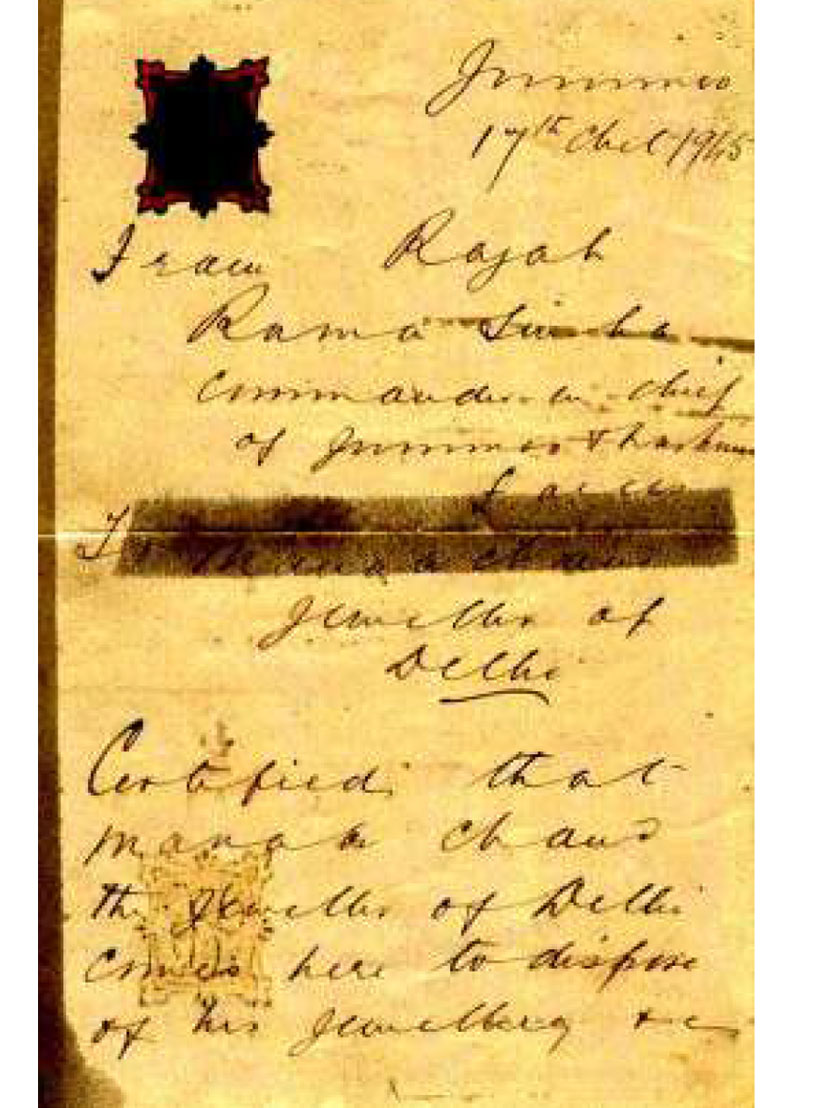 Jummoo
17th Oct 1945
From Rajah
Rama Singha
Commander in chief
of Jummoo & Kashmir
To Manak Chand
Jeweller of
Delhi
Certified that
Manak Chand
the Jeweller of Delhi
comes here to dispose
of his Jewellery &c